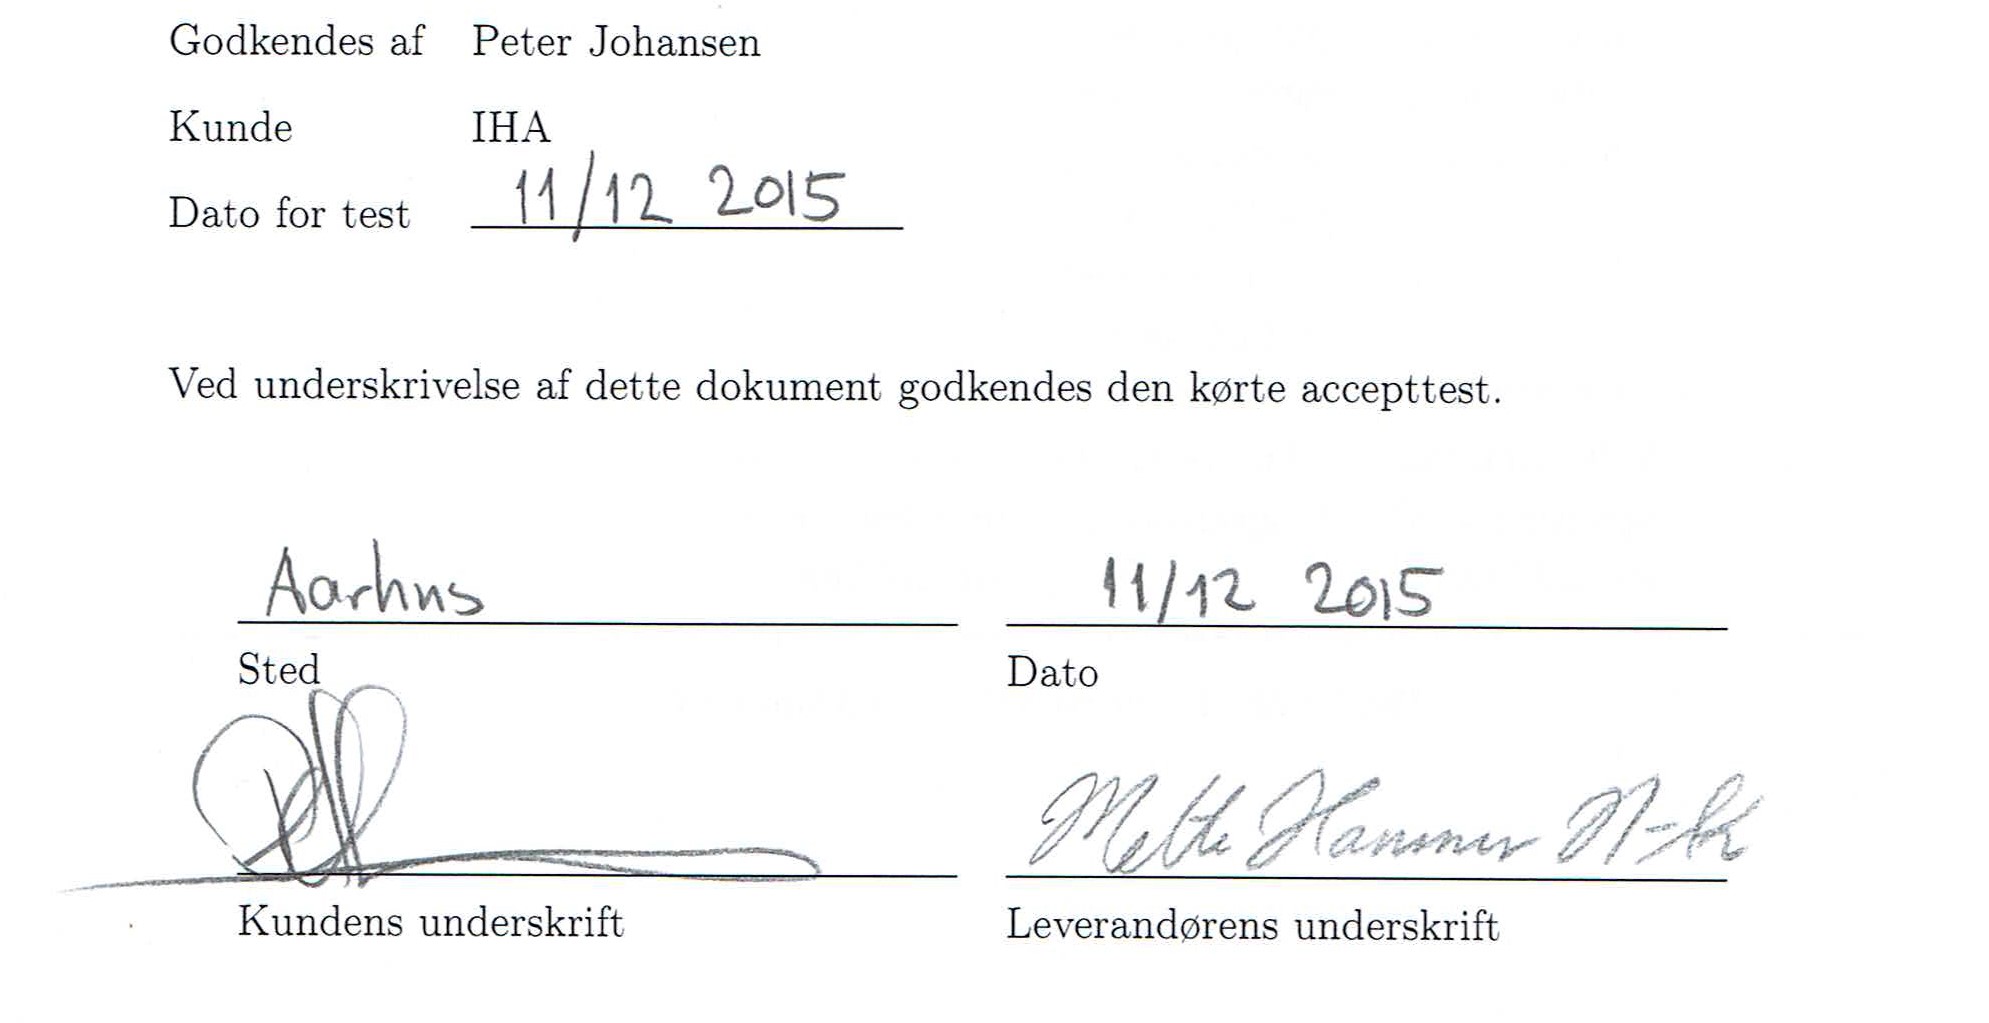 Godkendes af Peter Johansen
Kunde IHA
Dato for test 11/12 2015
Ved underskrivelse af dette dokument godkendes den kørte accepttest.
Aarhus 11/12 2015
Sted Dato
Mette Hammer N-K
Kundens underskrift Leverandørens underskrift